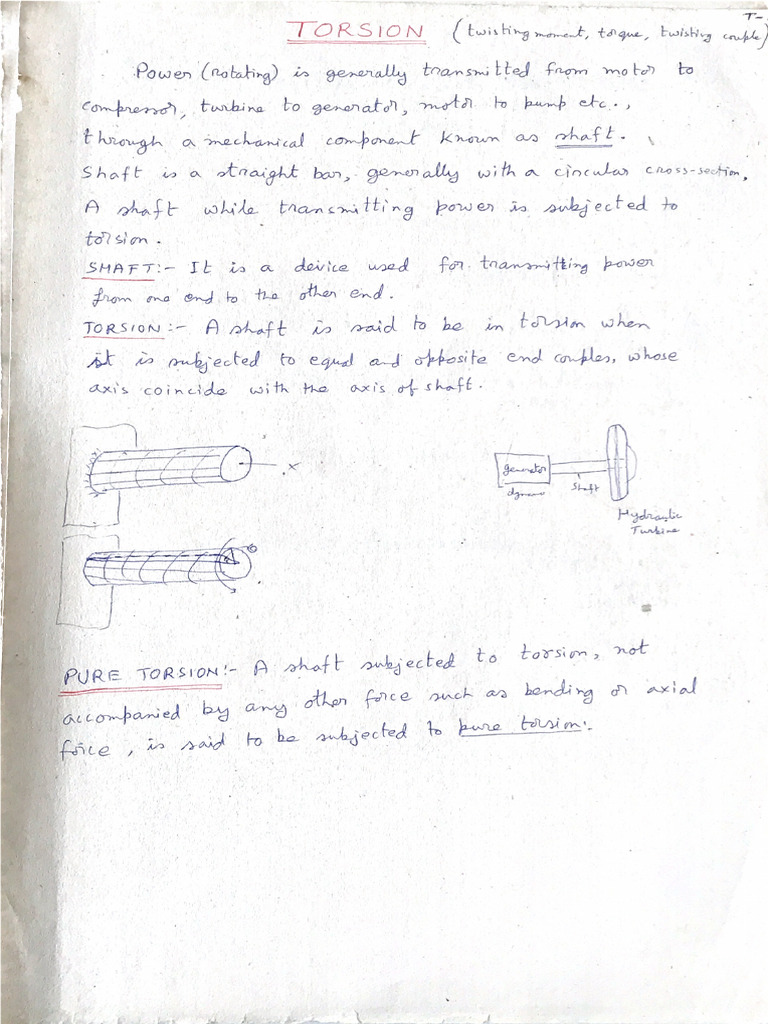 T-
TORSION (twisting moment, torque, twisting couple)
Power (rotating) is generally transmitted from motor to
compressor, turbine to generator, motor to pump etc.,
through a mechanical component known as shaft.
Shaft is a straight bar, generally with a circular cross-section.
A shaft while transmitting power is subjected to
torsion.
SHAFT:- It is a device used for transmitting power
from one end to the other end.
TORSION:- A shaft is said to be in torsion when
it is subjected to equal and opposite end couples, whose
axis coincide with the axis of shaft.
x
generator
dynamo
shaft
Hydraulic
Turbine
PURE TORSION:- A shaft subjected to torsion, not
accompanied by any other force such as bending or axial
force, is said to be subjected to pure torsion.